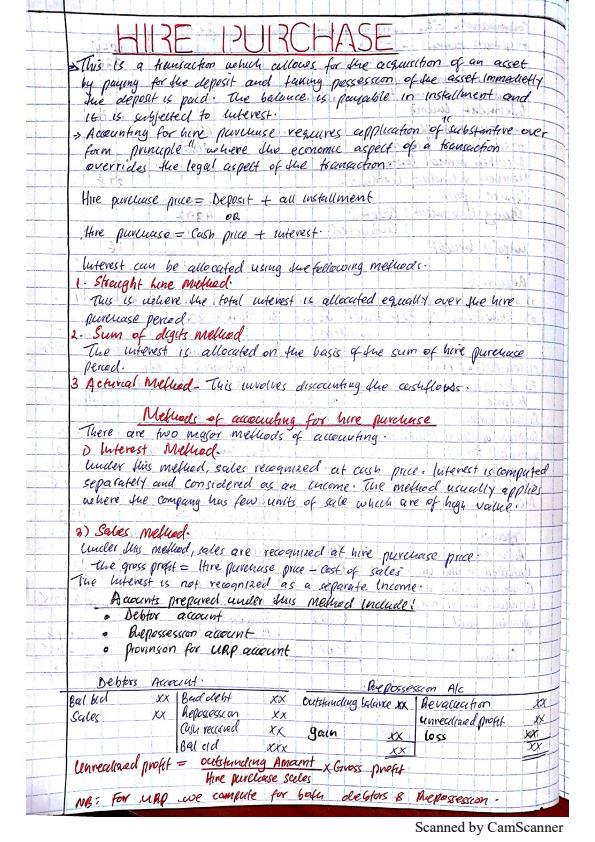 HIRE PURCHASE
→ This is a transaction which allows for the acquisition of an asset
by paying for the deposit and taking possession of the asset immedietly
the deposit is paid. The balance is payable in installment and
it is subjected to interest.
→ Accounting for hire purchase requires application of "substantive over
form principle" where the economic aspect of a transaction
overrides the legal aspect of the transaction.
Hire purchase price = Deposit + all installment
OR
Hire purchase = Cash price + interest.
Interest can be allocated using the following methods.
1. Straight line Method.
This is where the total interest is allocated equally over the hire
purchase period.
2. Sum of digits method
The interest is allocated on the basis of the sum of hire purchase
period.
3 Acturial Method - This involves discounting the cashflows.
Methods of accounting for hire purchase
There are two major methods of accounting.
1) Interest Method.
Under this method, sales recognized at cash price. Interest is computed
separately and considered as an income. The method usually applies
where the company has few units of sale which are of high value.
2) Sales method.
Under this method, sales are recognized at hire purchase price.
The gross profit = Hire purchase price - Cost of sales
The interest is not recognized as a separate income.
Accounts prepared under this method include:
• Debtor account
• Repossession account
• provinson for URP account
Debtors Account. Repossession A/c
Bal b/d xx Bad debt xx Outstanding balance xx Revaluation xx
Sales xx Repossession xx unrealized profit xx
Cash received xx gain xx loss xx
Bal c/d xxx xx xx
Unrealized profit = outstanding Amount / Hire purchase sales x Gross profit
NB: For URP we compute for both debtors & Repossession.
Scanned by CamScanner